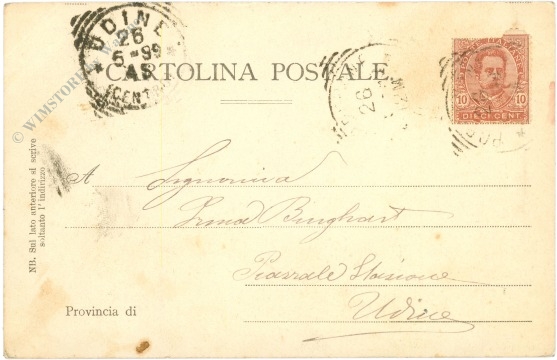 UDINE
26
5-99
CENTR
CARTOLINA POSTALE
26
10 10
DIECI CENT.
© WIMSTORE
NB. Sul lato anteriore si scrive
soltanto l'indirizzo
A Signorina
Irma Binghart
Piazzale Stazione
Provincia di Udine